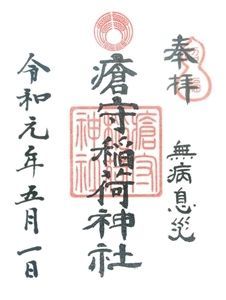 奉拝
無病息災
瘡守稲荷神社
瘡守稲荷神社
令和元年五月一日